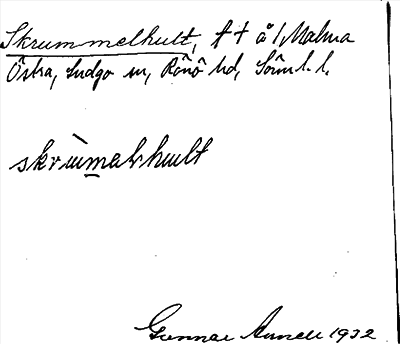 Skrummelhult, t t å 1/ Malma
Östra, Ludgo sn, Rönö hd, Sörml. l.
skrùmelhult
Gunnar Annell 1932